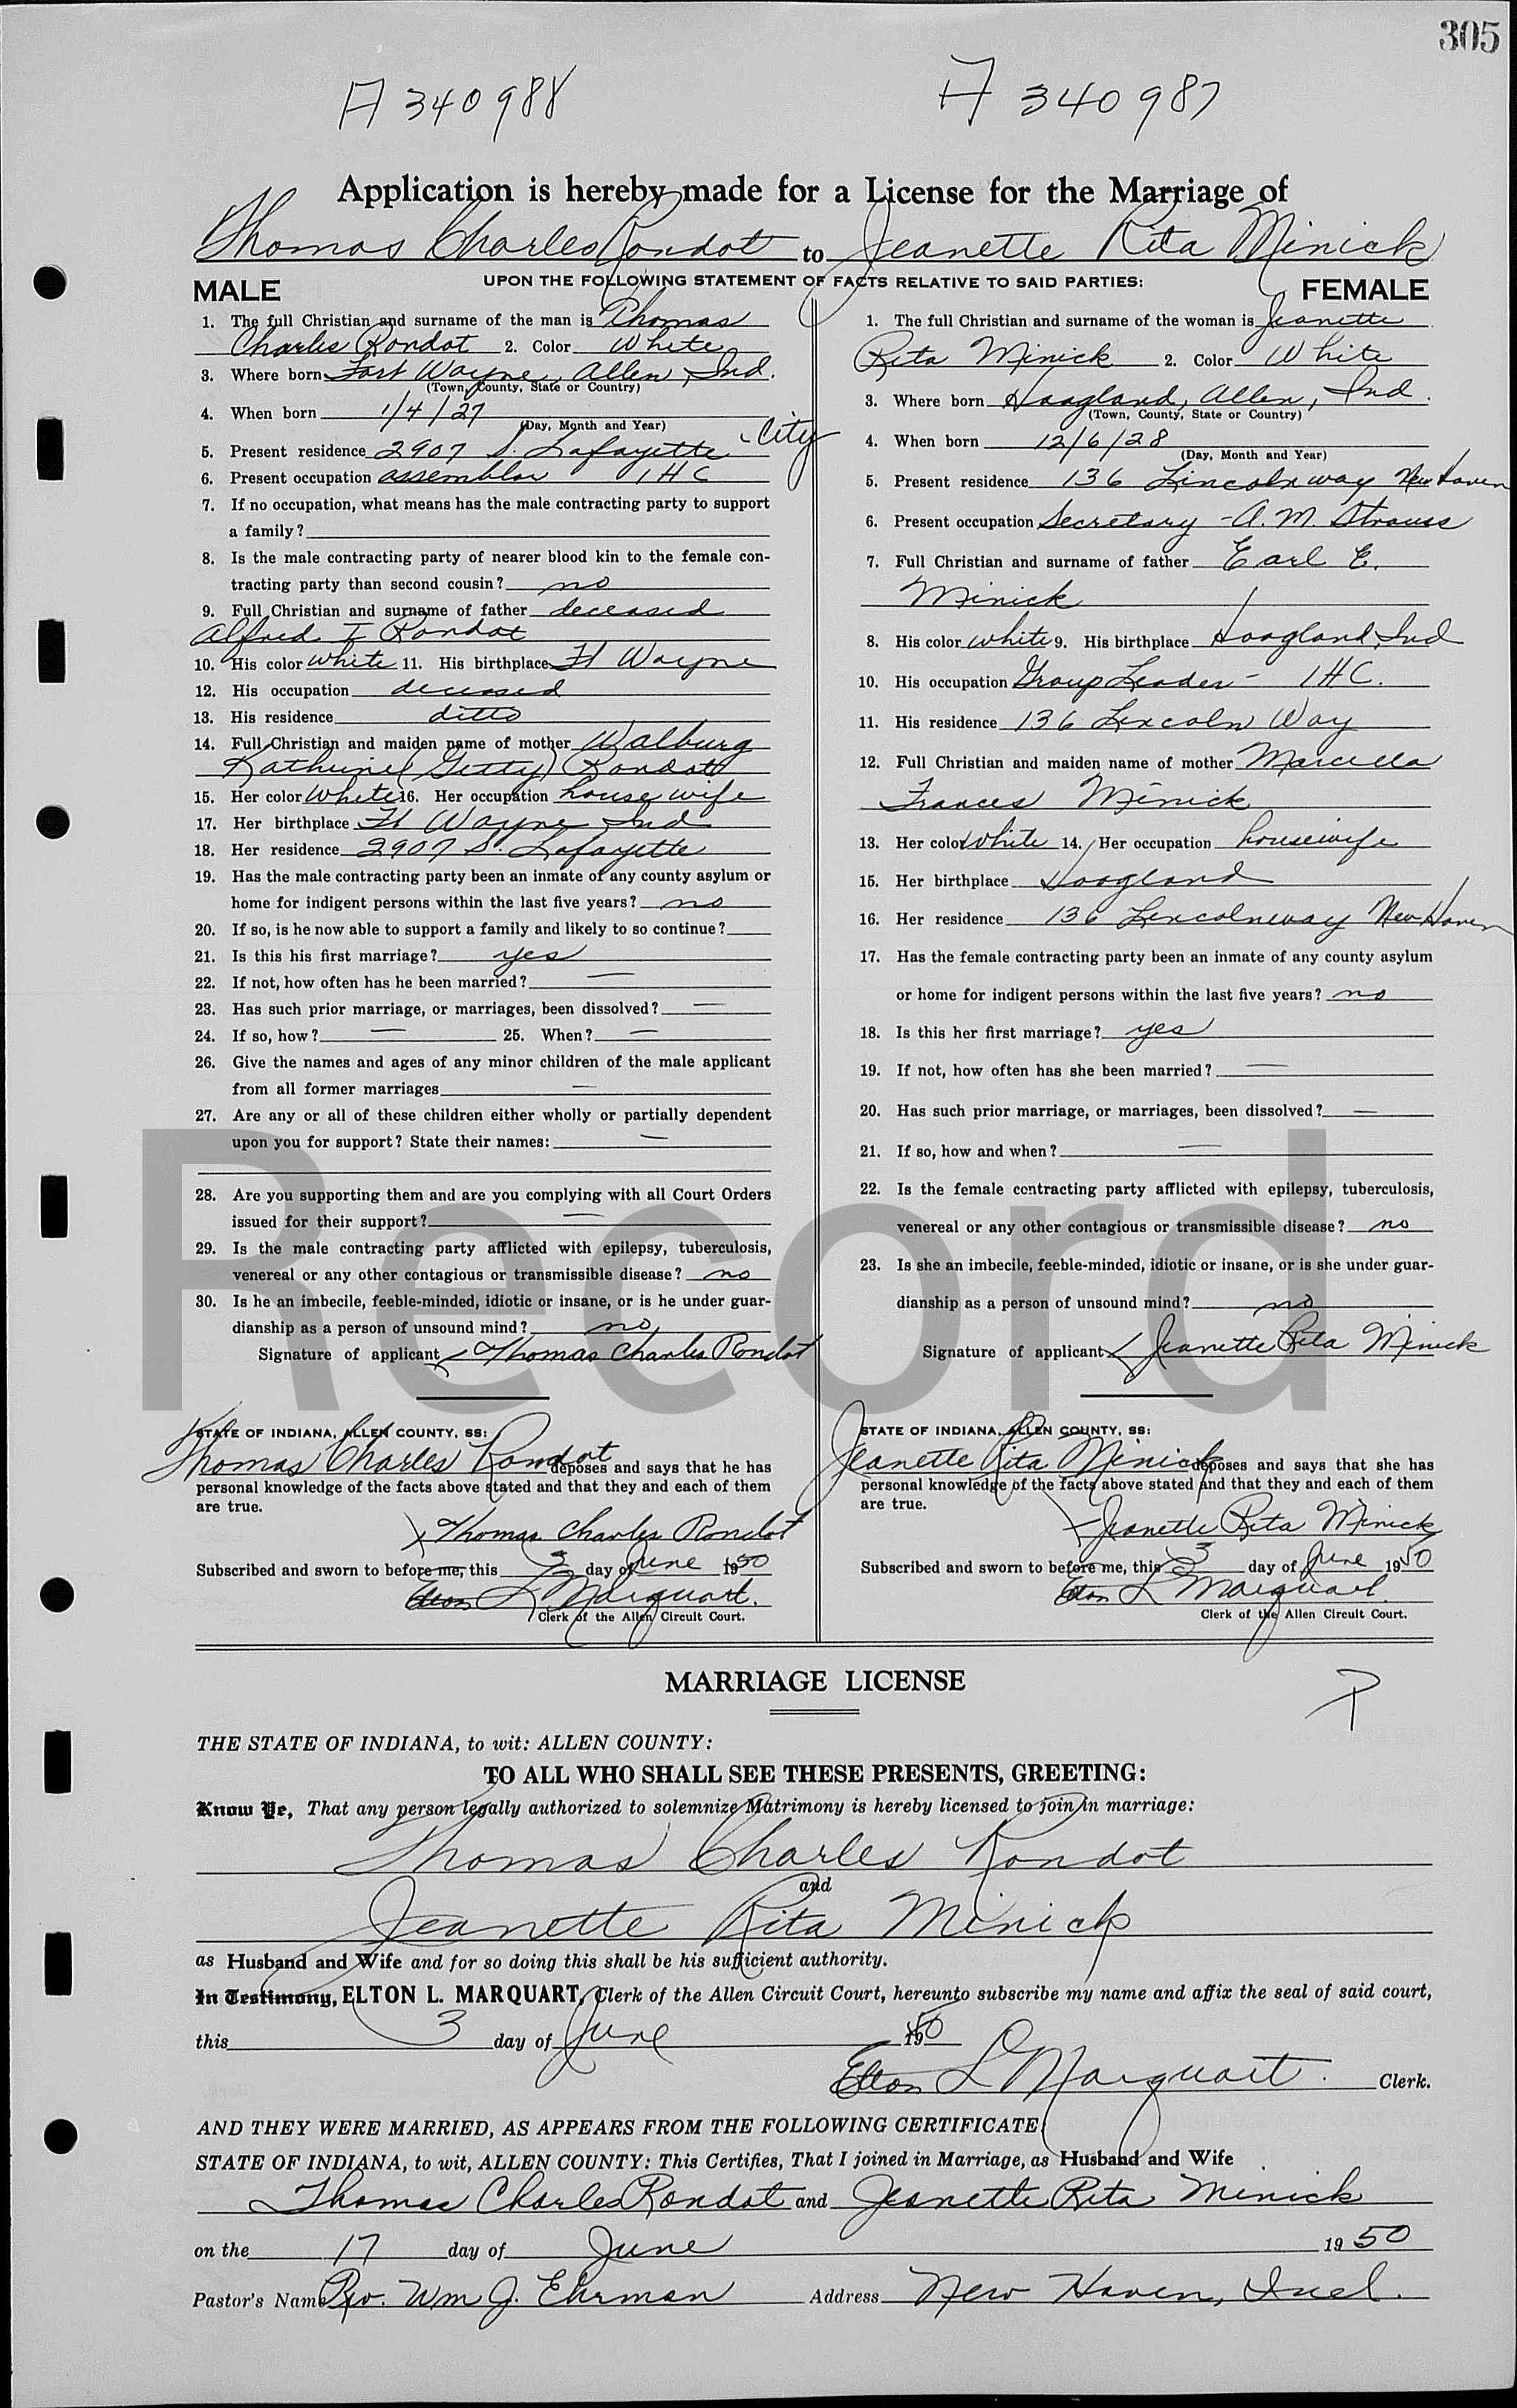 305
A 340988 A 340987
Application is hereby made for a License for the Marriage of
Thomas Charles Rondot to Jeanette Rita Minick
UPON THE FOLLOWING STATEMENT OF FACTS RELATIVE TO SAID PARTIES:
MALE
1. The full Christian and surname of the man is Thomas
Charles Rondot 2. Color White
3. Where born Fort Wayne, Allen, Ind.
(Town, County, State or Country)
4. When born 1/4/27
(Day, Month and Year)
5. Present residence 2907 S. Lafayette - City
6. Present occupation assembler IHC
7. If no occupation, what means has the male contracting party to support
a family?
8. Is the male contracting party of nearer blood kin to the female con-
tracting party than second cousin? no
9. Full Christian and surname of father deceased
Alfred I Rondot
10. His color white 11. His birthplace Ft Wayne
12. His occupation deceased
13. His residence ditto
14. Full Christian and maiden name of mother Walburg
Katherine (Getty) Rondot
15. Her color White 16. Her occupation housewife
17. Her birthplace Ft Wayne, Ind
18. Her residence 2907 S. Lafayette
19. Has the male contracting party been an inmate of any county asylum or
home for indigent persons within the last five years? no
20. If so, is he now able to support a family and likely to so continue?
21. Is this his first marriage? yes
22. If not, how often has he been married? —
23. Has such prior marriage, or marriages, been dissolved? —
24. If so, how? — 25. When? —
26. Give the names and ages of any minor children of the male applicant
from all former marriages —
27. Are any or all of these children either wholly or partially dependent
upon you for support? State their names: —
28. Are you supporting them and are you complying with all Court Orders
issued for their support? —
29. Is the male contracting party afflicted with epilepsy, tuberculosis,
venereal or any other contagious or transmissible disease? no
30. Is he an imbecile, feeble-minded, idiotic or insane, or is he under guar-
dianship as a person of unsound mind? no
Signature of applicant Thomas Charles Rondot
STATE OF INDIANA, ALLEN COUNTY, SS:
Thomas Charles Rondot deposes and says that he has
personal knowledge of the facts above stated and that they and each of them
are true.
Thomas Charles Rondot
Subscribed and sworn to before me, this 3 day of June 1950
Elton L Marquart.
Clerk of the Allen Circuit Court.
FEMALE
1. The full Christian and surname of the woman is Jeanette
Rita Minick 2. Color White
3. Where born Hoagland, Allen, Ind.
(Town, County, State or Country)
4. When born 12/6/28
(Day, Month and Year)
5. Present residence 136 Lincolnway New Haven
6. Present occupation Secretary - A. M. Strauss
7. Full Christian and surname of father Earl E.
Minick
8. His color white 9. His birthplace Hoagland, Ind
10. His occupation Group Leader - IHC.
11. His residence 136 Lincoln Way
12. Full Christian and maiden name of mother Marcella
Frances Minick
13. Her color White 14. Her occupation housewife
15. Her birthplace Hoagland
16. Her residence 136 Lincolnway New Haven
17. Has the female contracting party been an inmate of any county asylum
or home for indigent persons within the last five years? no
18. Is this her first marriage? yes
19. If not, how often has she been married? —
20. Has such prior marriage, or marriages, been dissolved? —
21. If so, how and when? —
22. Is the female contracting party afflicted with epilepsy, tuberculosis,
venereal or any other contagious or transmissible disease? no
23. Is she an imbecile, feeble-minded, idiotic or insane, or is she under guar-
dianship as a person of unsound mind? no
Signature of applicant Jeanette Rita Minick
STATE OF INDIANA, ALLEN COUNTY, SS:
Jeanette Rita Minick deposes and says that she has
personal knowledge of the facts above stated and that they and each of them
are true.
Jeanette Rita Minick
Subscribed and sworn to before me, this 3 day of June 1950
Elton L Marquart.
Clerk of the Allen Circuit Court.
Record
MARRIAGE LICENSE
P
THE STATE OF INDIANA, to wit: ALLEN COUNTY:
TO ALL WHO SHALL SEE THESE PRESENTS, GREETING:
Know Ye, That any person legally authorized to solemnize Matrimony is hereby licensed to join in marriage:
Thomas Charles Rondot
and
Jeanette Rita Minick
as Husband and Wife and for so doing this shall be his sufficient authority.
In Testimony, ELTON L. MARQUART, Clerk of the Allen Circuit Court, hereunto subscribe my name and affix the seal of said court,
this 3 day of June 1950
Elton L Marquart. Clerk.
AND THEY WERE MARRIED, AS APPEARS FROM THE FOLLOWING CERTIFICATE:
STATE OF INDIANA, to wit, ALLEN COUNTY: This Certifies, That I joined in Marriage, as Husband and Wife
Thomas Charles Rondot and Jeanette Rita Minick
on the 17 day of June 1950
Pastor's Name Rev. Wm J. Ehrman Address New Haven, Ind.